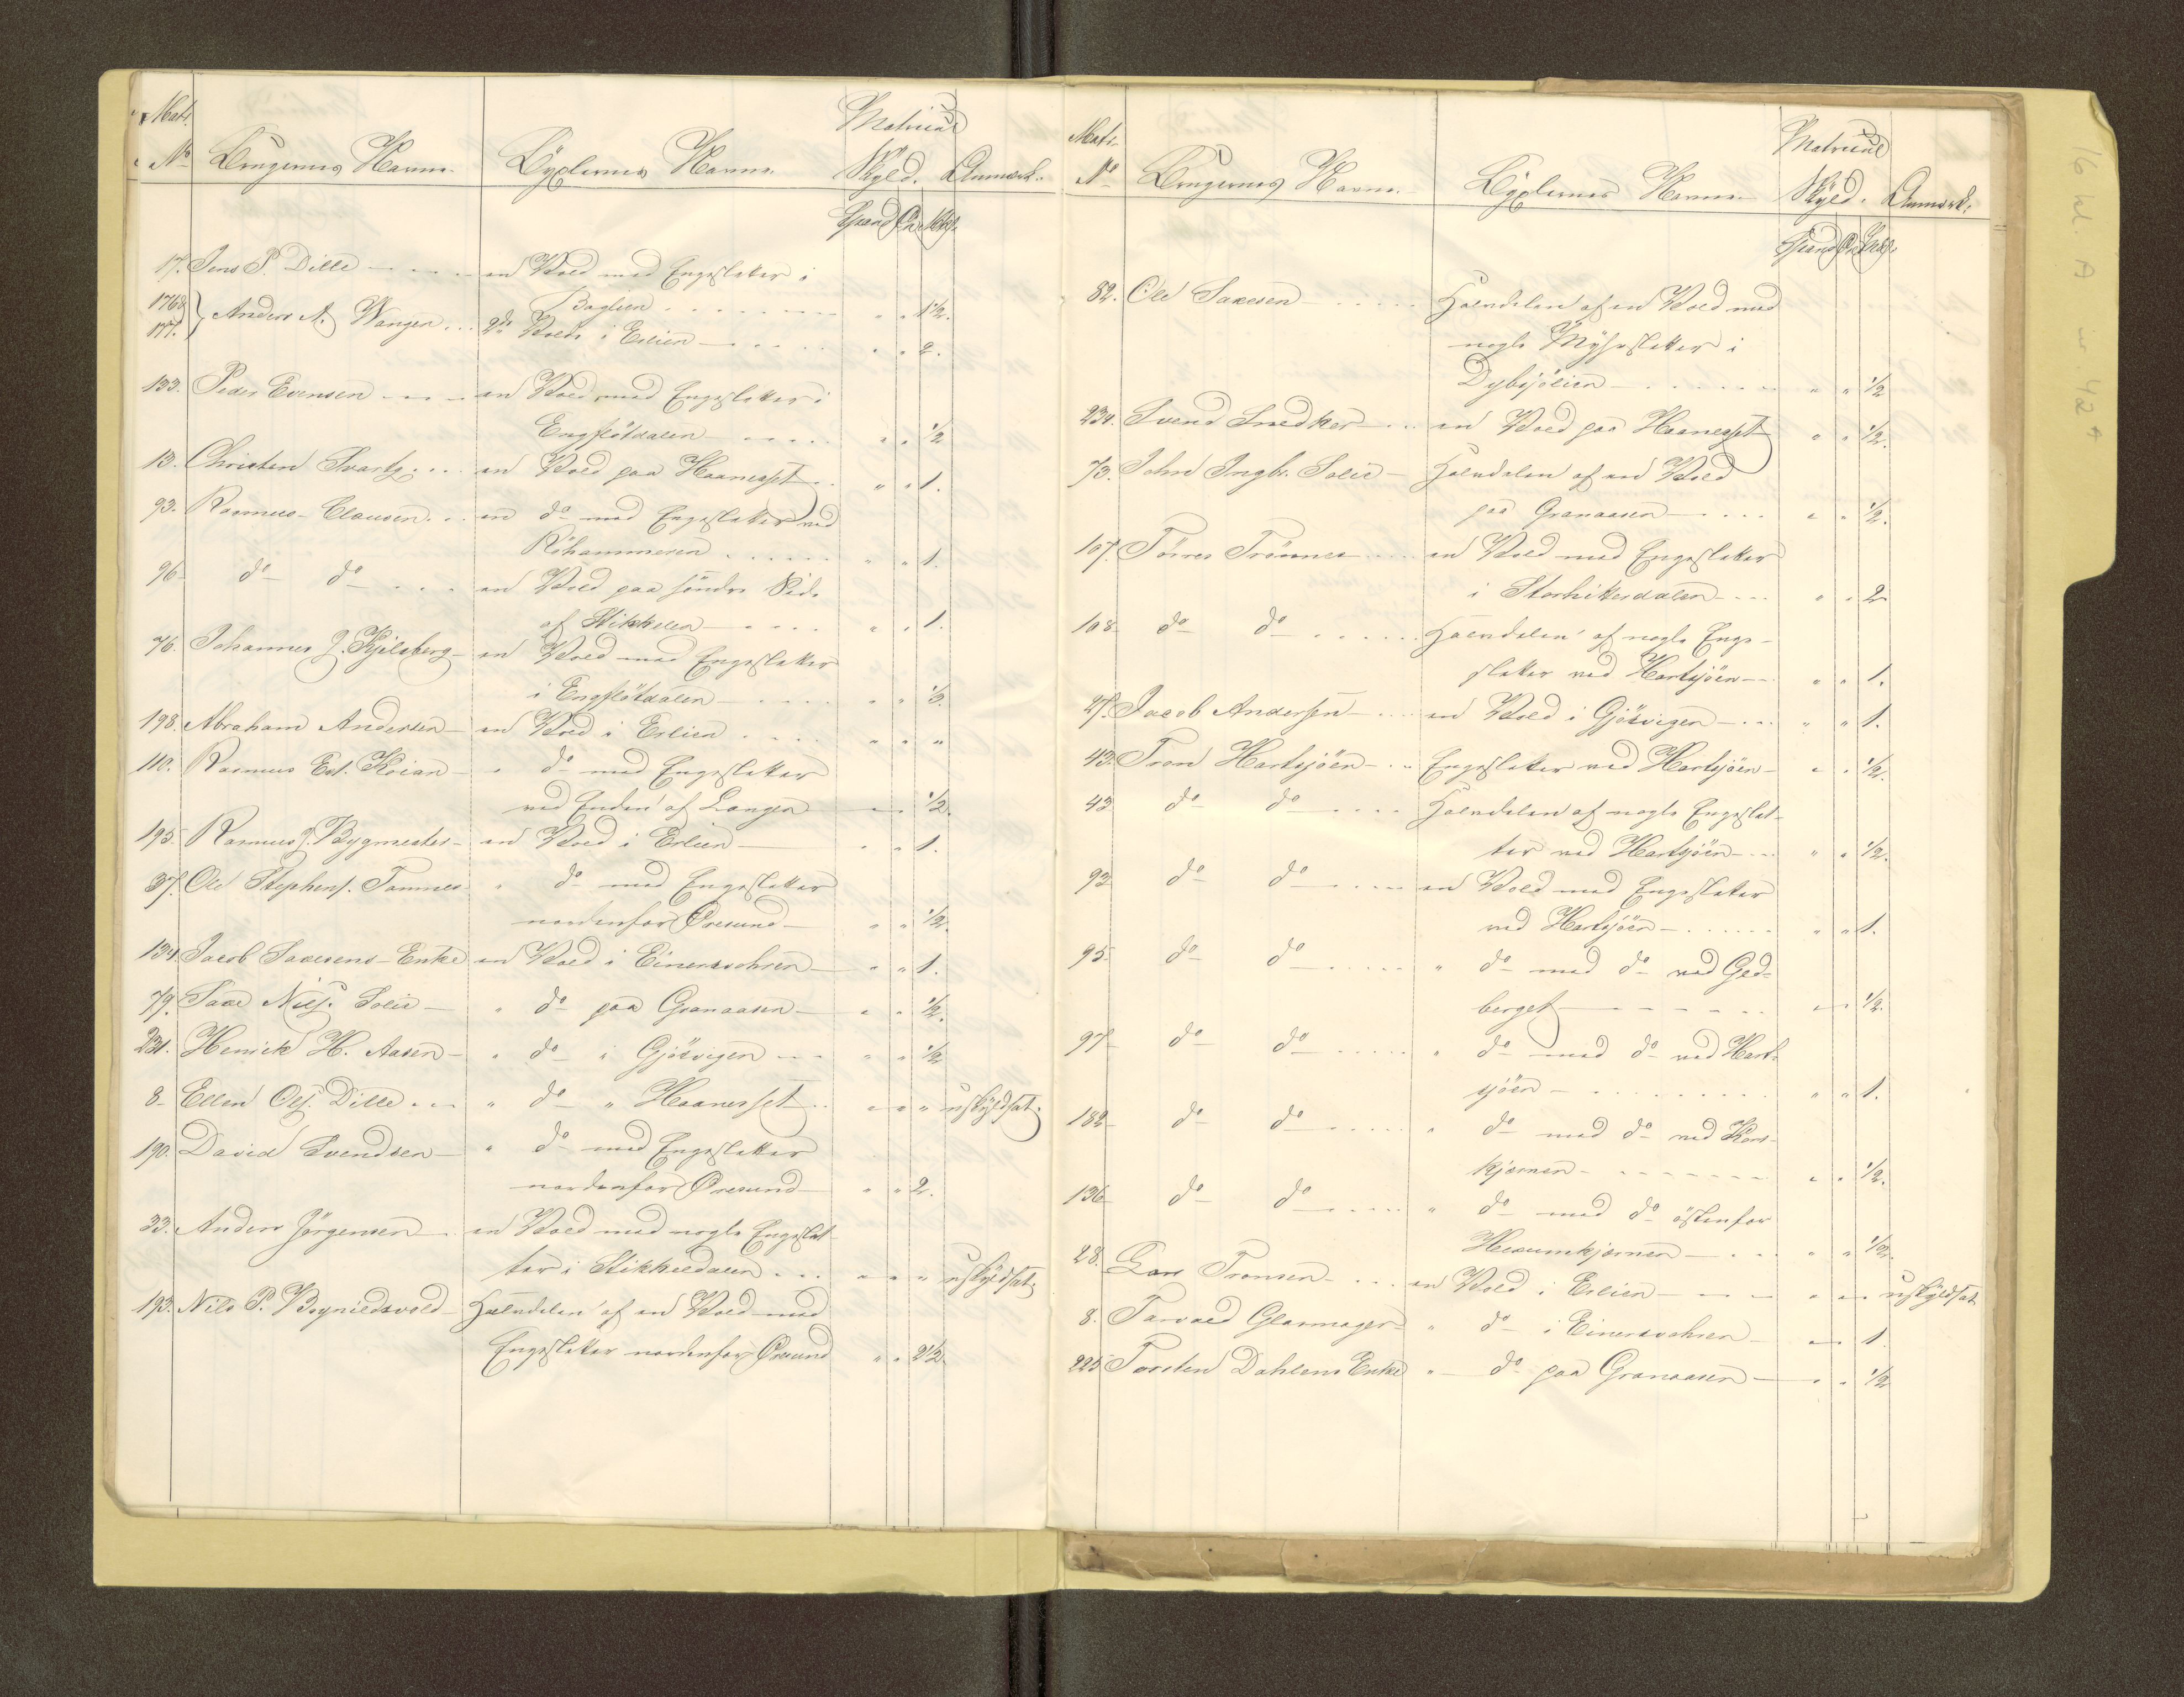 Matr.
No Brugernes Navne. Byxlernes Navne. Matricul Skyld. Anmærk.
Spand Ør. Mkl.
17. Jens P. Dille - - - en Vold med Engesletter i
Baglien - - - " " 1½.
176 & 177. Anders A. Wangen - - - 2de Volde i Erlien - - - " " 2.
133. Peder Evensen - - - en Vold med Engesletter i
Engfløtdalen - - - " " ½
13. Christen Svartz - - - en Vold paa Haanesset - - " " 1.
93. Rasmus Clausen - - en do med Engesletter ved
Røhammeren - - - " " 1.
96 do do - - - en Vold paa søndre Side
af Stikkelen - - - " " 1.
76. Johannes J. Kjelsberg - en Vold med Engesletter
i Engfløtdalen - - - " " ½.
198. Abraham Andersen - en Vold i Erlien - - - " " "
110. Rasmus Est. Koian - " do med Engesletter
ved Enden af Langen - - ½.
195. Rasmus J. Bygmester - en Vold i Erlien - " " 1.
37. Ole Stephens. Tamnes " do med Engesletter
nordenfor Øresund - " " ½.
134 Jacob Saxesens Enke en Vold i Einersvohren - " " 1.
79. Saxe Nils. Solie - " do paa Granaasen - " " ½.
231. Henrick H. Aasen - " do i Gjøsvigen - - " " ½
8. Ellen Ols. Dille - - - " do " Haanesset - - " " " uskyldsat.
190. David Svendsen - " do med Engesletter
nordenfor Øresund - " " 2.
33. Anders Jørgensen - en Vold med nogle Engeslet-
ter i Stikkeldalen - - - " " " uskyldsat.
193. Nils P. Brynildsvold - Halvdelen af en Vold med
Engesletter nordenfor Øresund " " 2½.
Matr.
No Brugernes Navne. Byxlernes Navne. Matricul Skyld. Anmærk.
Spand Ør. Mkl.
82. Ole Saxesen - - - Halvdelen af en Vold med
nogle Myhrsletter i
Dybsjølien - - - " " ½
234. Svend Snedker - - en Vold paa Haanesset " " ½.
73. John Ingb. Solie - Halvdelen af en Vold
paa Granaasen - - - " " ½.
107. Tørres Trønnes - - en Vold med Engesletter
i Storhitterdalen - - - " " 2
108 do do - - - Halvdelen af nogle Enge-
sletter ved Hartsjøen - - " " 1.
27. Jacob Andersen - - en Vold i Gjøsvigen - - - " " 1.
43. Tron Hartsjøen - - Engesletter ved Hartsjøen - " " ½.
43 do do - - - Halvdelen af nogle Engeslet-
ter ved Hartsjøen - - " " ½.
93 do do - - - en Vold med Engesletter
ved Hartsjøen - - - " " 1.
95 do do - - - " do med do ved Ged-
berget - - - " " ½.
97 do do - - - " do med do ved Hart-
sjøen - - - " " 1.
182 do do - - - " do med do ved Kors-
kjærnen - - - " " ½.
136 do do - - - " do med do østenfor
kjærnen - - - " " ½.
28. Lars Tronsen - - - en Vold i Erlien - - - " " " uskyldsat
8. Tarald Glarmager - " do i Einersvohren - " " 1
225 Torsten Dahlens Enke " do paa Granaasen - " " ½
16 kl. A nr. 42 A